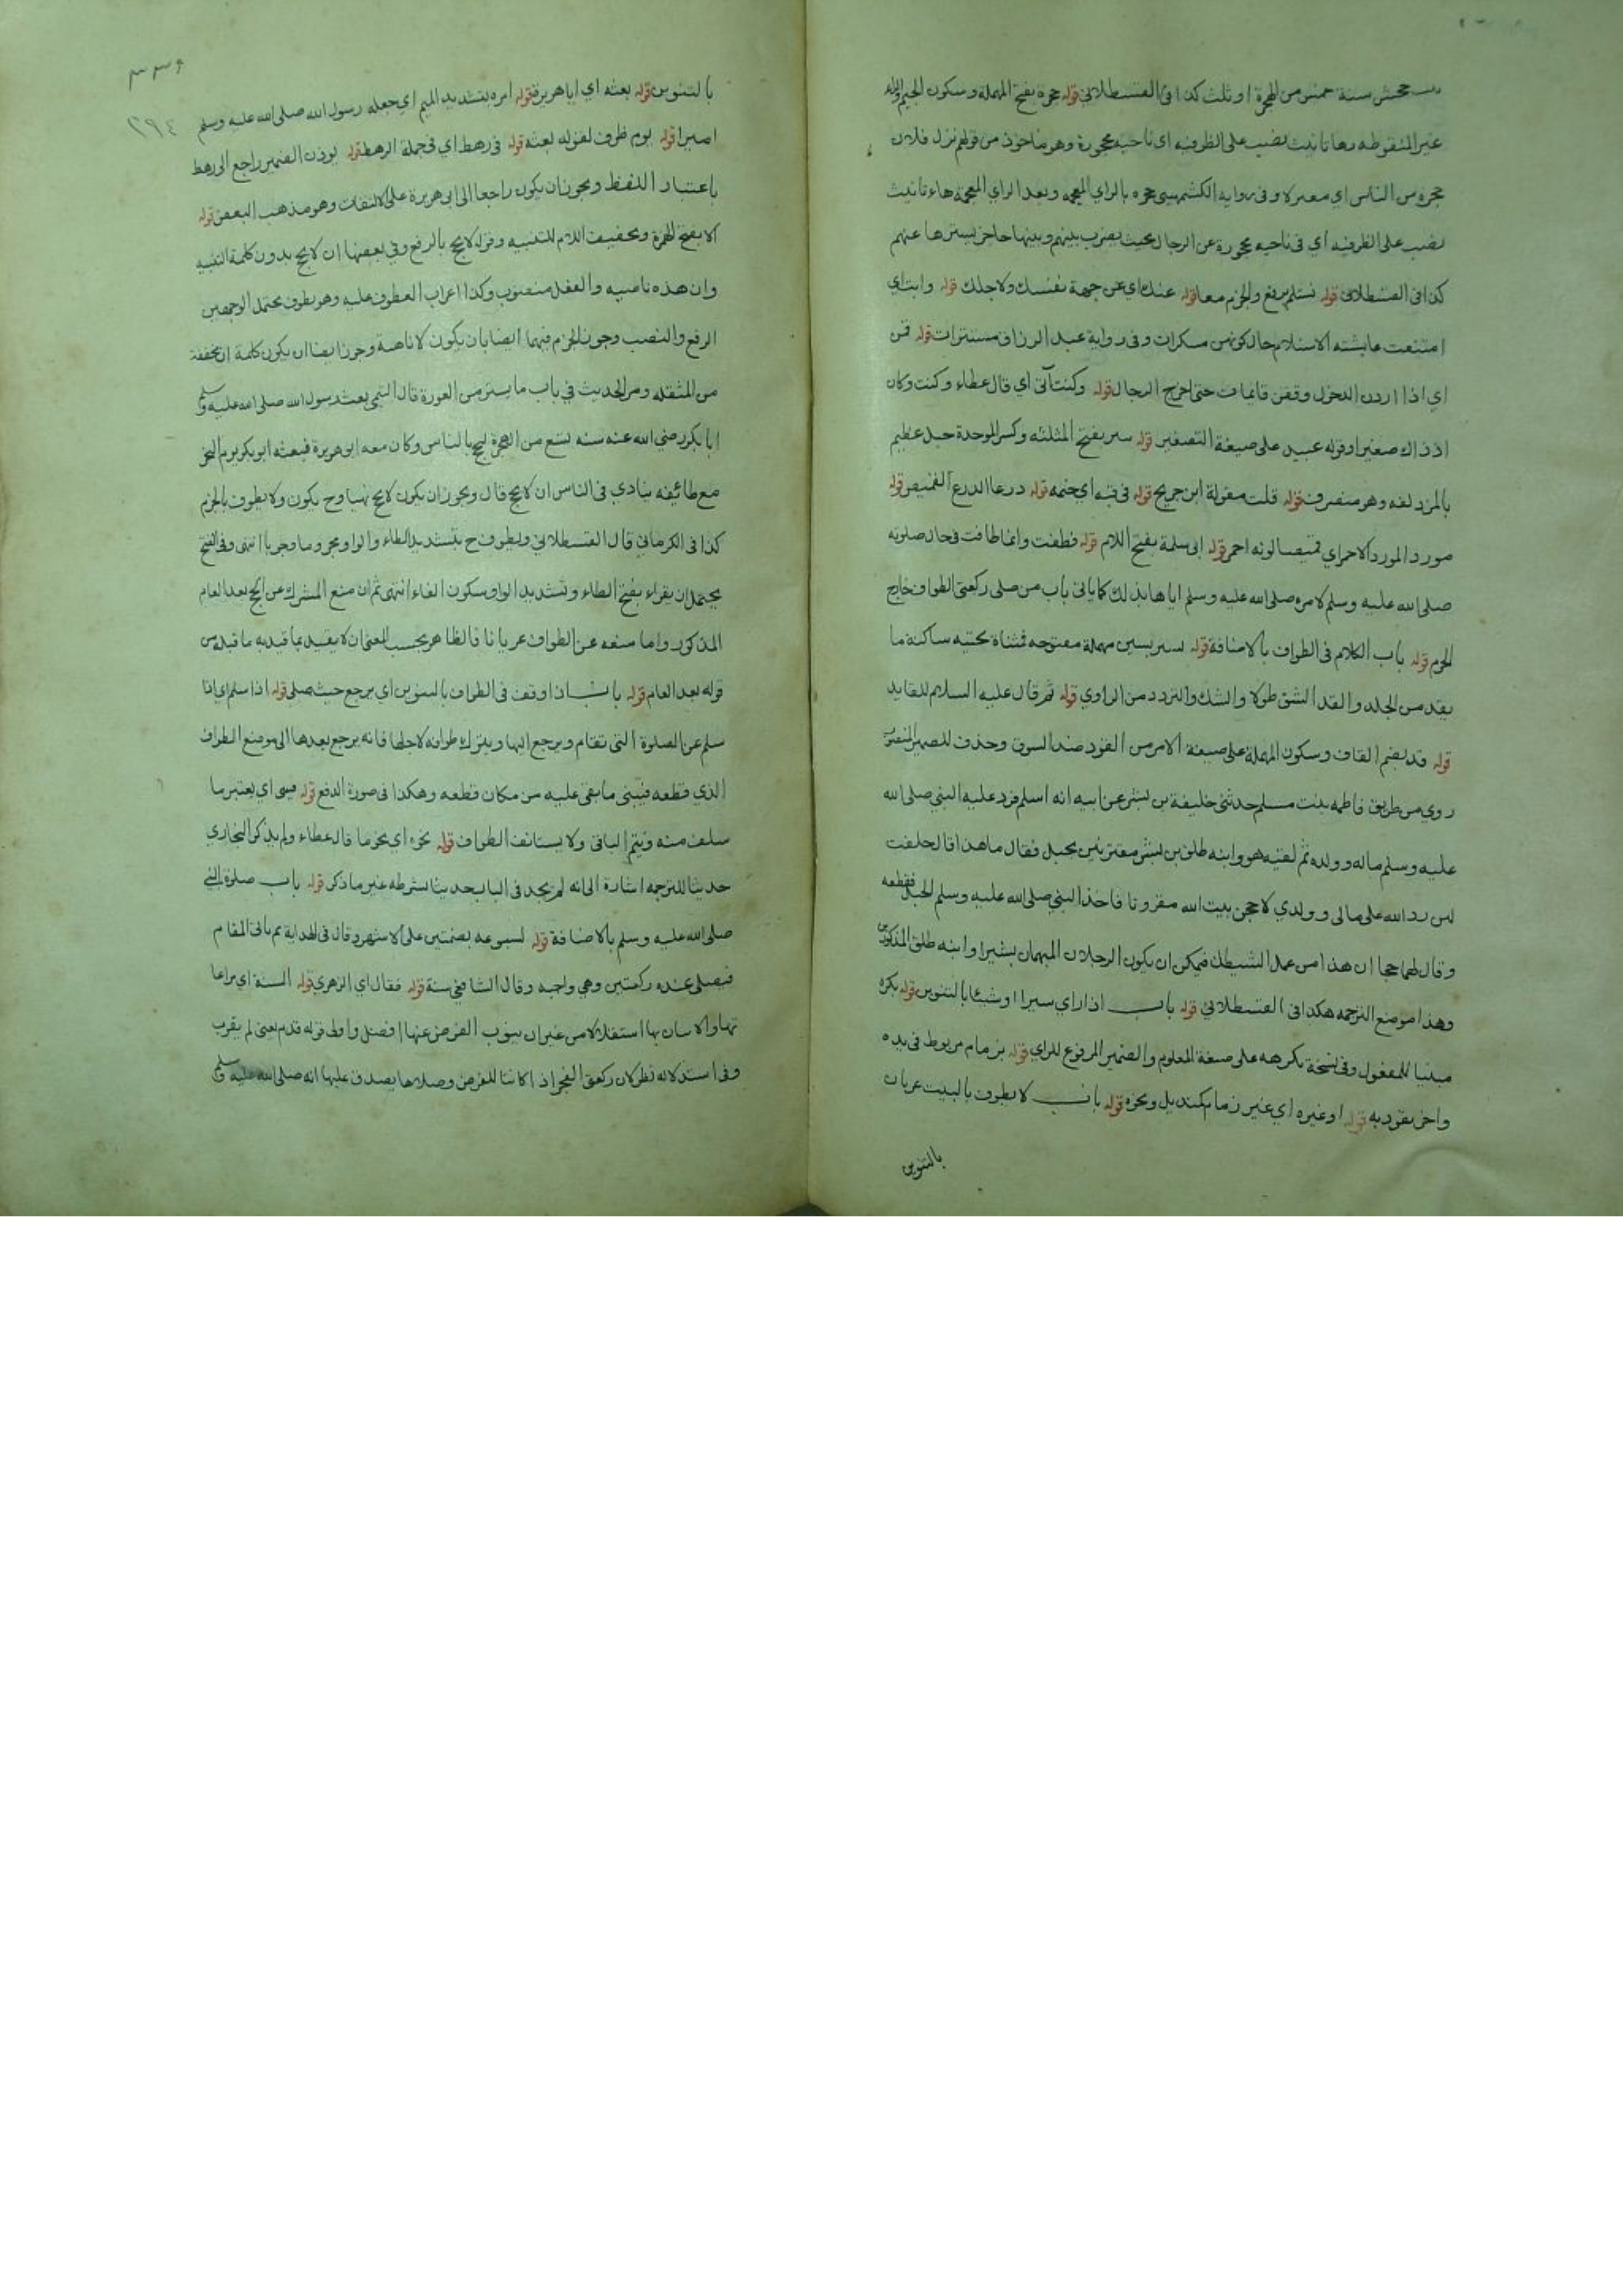 سنة خمس من الهجرة او ثلث كذا في القسطلاني قوله حجرة بفتح المهملة وسكون الجيم والراء
غير المنقوطه بعدها تانيث نصب على الظرفيه اي ناحيه محجورة وهو ماخوذ من قولهم نزل فلان
حجره من الناس اي معتزلا وفي رواية الكشميهني حجزه بالزاي المعجمه وبعد الزاي المعجمة هاء تانيث
نصب على الظرفيه اي في ناحيه محجورة عن الرجال بحيث يضرب بينهم وبينها حاجز يسترها عنهم
كذا في القسطلاني قوله نستلم برفع والجزم معا قوله عنك اي عن جهة نفسك ولاجلك قوله وابت اي
امتنعت عايشته الاستلام حال كونهن متنكرات وفي رواية عبد الرزاق مستترات قوله قمن
اي اذا اردن الدخول وقفن قايمات حتى اخرج الرجال قوله وكنت آتى اي قال عطاء وكنت وكان
اذ ذاك صغيرا وقوله عبيد على صيغة التصغير قوله ثبير بفتح المثلثه وكسر الموحدة جبل عظيم
بالمزدلفه وهو منصرف قوله قلت مقولة ابن جريج قوله في قبه اي خيمه قوله درعا الدرع القميص قوله
مورد المورد الاحمر اي قميصا لونه احمر قوله ابي سلمة بفتح اللام قوله فطفت وانما طافت في حال صلوته
صلى الله عليه وسلم لامره صلى الله عليه وسلم اياها بذلك كما ياتي باب من صلى ركعتي الطواف خارج
الحرم قوله باب الكلام في الطواف بالاضافة قوله بسير بسين مهملة مفتوحه فمثناة تحتيه ساكنة ما
يقد من الجلد والقد الشق طولا والشك والتردد من الراوي قوله ثم قال عليه السلام للقايد
قوله قد بضم القاف وسكون المهملة على صيغة الامر من القود ضد السوق وحذف للضمير المنصوب
روي من طريق فاطمه بنت مسلم حدثني خليفة بن بشر عن ابيه انه اسلم فرد عليه النبي صلى الله
عليه وسلم ماله وولده ثم لقيه هو وابنه طلق بن بشر مقترنين بحبل فقال ما هذا قال حلفت
لين رد الله علي مالي وولدي لاحجن بيت الله مقرونا فاخذ النبي صلى الله عليه وسلم الحبل فقطعه
وقال لهما حجا ان هذا من عمل الشيطن فيمكن ان يكون الرجلان المبهمان بشيرا وابنه طلق المذكورين
وهذا موضع الترجمه هكذا في القسطلاني قوله باب اذا راي سيرا او شيئا بالتنوين قوله يكره
مبنيا للمفعول وفي نسخة يكرهه على صيغة المعلوم والضمير المرفوع للراي قوله بزمام مربوط في يده
واخر يقود به قوله او غيره اي غير زمام كمنديل ونحوه قوله باب لا يطوف بالبيت عريان
بالتنوين
٣٩٤
بالتنوين قوله بعثه اي ابا هريرة قوله امره بتشديد الميم اي جعله رسول الله صلى الله عليه وسلم
اميرا قوله يوم ظرف لقوله بعثه قوله في رهط اي في جملة الرهط قوله يوذن الضمير راجع الى رهط
باعتبار اللفظ ويجوز ان يكون راجعا الى ابي هريرة على الالتفات وهو مذهب البعض قوله
الا بفتح الهمزة وتخفيف اللام للتنبيه وقوله لا يحج بالرفع وفي بعضها ان لا يحج بدون كلمة التنبيه
وان هذه ناصبيه والفعل منصوب وكذا اعراب المعطوف عليه وهو يطوف يحتمل الوجهين
الرفع والنصب وجوز الجزم فيهما ايضا بان يكون لا ناهية وجوز ايضا ان يكون كلمة ان مخففة
من المثقله ومر الحديث في باب ما يستر من العورة قال التيمي بعث رسول الله صلى الله عليه وسلم
ابا بكر رضي الله عنه سنه تسع من الهجرة ليحج بالناس وكان معه ابو هريرة فبعثه ابو بكر يوم النحر
مع طائفه ينادي في الناس ان لا يحج قال ويجوز ان يكون لا يحج نهيا وح يكون ولا يطوف بالجزم
كذا في الكرماني قال القسطلاني ويطوف ح بتشديد الطاء والواو مجزوما وجوبا انتهى وفي الفتح
يحتمل ان يقراء بفتح الطاء وتشديد الواو وسكون الفاء انتهى ثم ان منع المشرك عن الحج بعد العام
المذكور واما منعه عن الطواف عريانا فالظاهر بحسب المعنى ان لا يقيد بما قيد به ما قبله من
قوله بعد العام قوله باب اذا وقف في الطواف بالتنوين اي يرجع حيث صلى قوله اذا سلم اي اذا
سلم عن الصلوة التي تقام ويرجع اليها ويترك طوافه لاجلها فانه يرجع بعدها الى موضع الطواف
الذي قطعه فيبنى ما بقى عليه من مكان قطعه وهكذا في صورة الدفع قوله فيبنى اي يعتبر ما
سلف منه ويتم الباقي ولا يستانف الطواف قوله نحوه اي نحو ما قال عطاء ولم يذكر البخاري
حديثا للترجمه اشارة الى انه لم يجد في الباب حديثا بشرطه غير ما ذكر قوله باب صلوة النبي
صلى الله عليه وسلم بالاضافة قوله لسبوعه بضمتين على الاشهر وقال في الهداية ثم ياتي المقام
فيصلى عنده ركعتين وهي واجبه وقال الشافعي سنة قوله فقال اي الزهري قوله السنة اي مراعا
تها والاتيان بها استقلالا من غير ان ينوب الفرض عنها افضل واولى قوله قدم يعنى لم يقرب
وفي استدلاله نظر لان ركعتي الفجر اذا كانتا للفرض وصلاها يصدق عليها انه صلى الله عليه وسلم